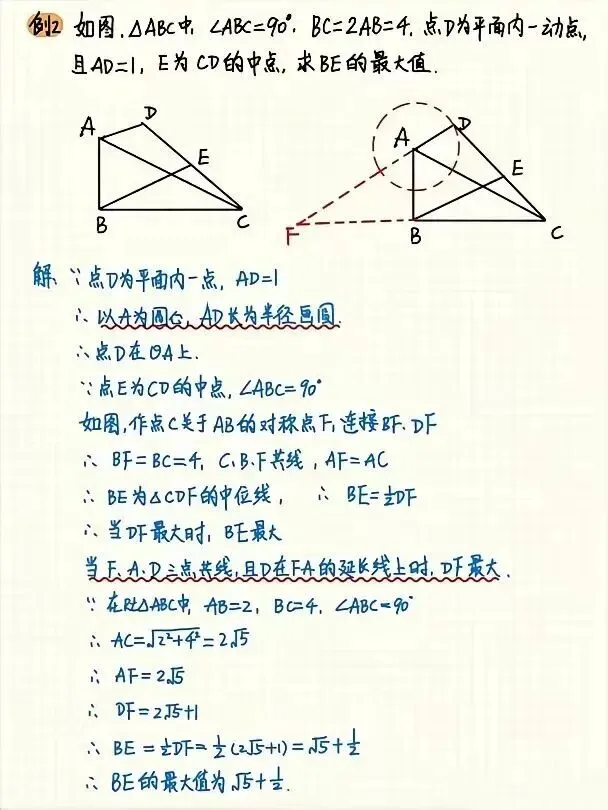 例2 如图,△ABC中,∠ABC=90°,BC=2AB=4,点D为平面内一动点,
且AD=1,E为CD的中点,求BE的最大值.
A D E B C
A D E F B C
解: ∵点D为平面内一点,AD=1
∴以A为圆心,AD长为半径画圆.
∴点D在⊙A上.
∵点E为CD的中点,∠ABC=90°
如图,作点C关于AB的对称点F,连接BF、DF
∴ BF=BC=4,C、B、F共线,AF=AC
∴ BE为△CDF的中位线, ∴ BE=½DF
∴当DF最大时,BE最大
当F、A、D三点共线,且D在FA的延长线上时,DF最大.
∵在Rt△ABC中,AB=2,BC=4,∠ABC=90°
∴ AC=√2²+4²=2√5
∴ AF=2√5
∴ DF=2√5+1
∴ BE=½DF=½(2√5+1)=√5+½
∴ BE的最大值为√5+½.